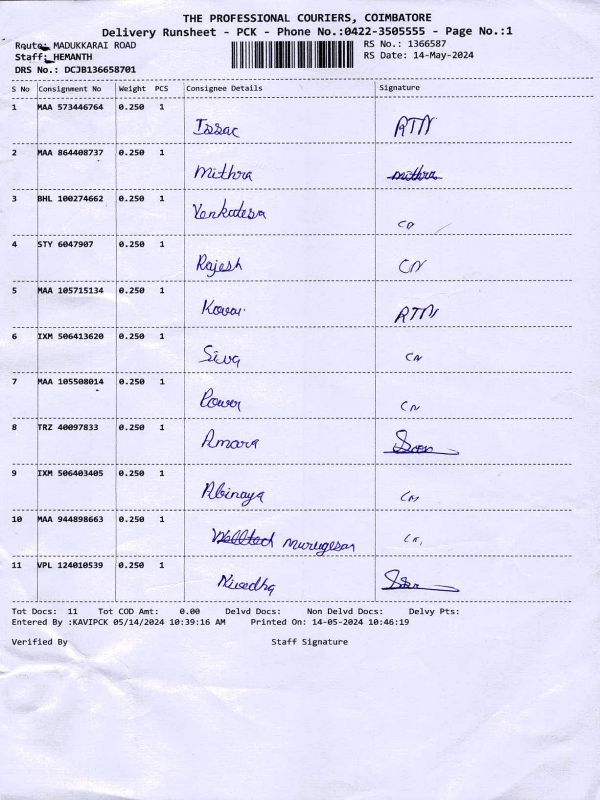 THE PROFESSIONAL COURIERS, COIMBATORE
Delivery Runsheet - PCK - Phone No.:0422-3505555 - Page No.:1
Route: MADUKKARAI ROAD RS No.: 1366587
Staff: HEMANTH RS Date: 14-May-2024
DRS No.: DCJB136658701
S No Consignment No Weight PCS Consignee Details Signature
1 MAA 573446764 0.250 1
Issac RTN
2 MAA 864408737 0.250 1
Mithra mithra
3 BHL 100274662 0.250 1
Venkatesa
4 STY 6047907 0.250 1
Rajesh CN
5 MAA 105715134 0.250 1
Kovai RTN
6 IXM 506413620 0.250 1
Siva CN
7 MAA 105508014 0.250 1
Power CN
8 TRZ 40097833 0.250 1
Amara
9 IXM 506403405 0.250 1
Abinaya CN
10 MAA 944898663 0.250 1
Welltech Murugesan
11 VPL 124010539 0.250 1
Nivedha
Tot Docs: 11 Tot COD Amt: 0.00 Delvd Docs: Non Delvd Docs: Delvy Pts:
Entered By :KAVIPCK 05/14/2024 10:39:16 AM Printed On: 14-05-2024 10:46:19
Verified By Staff Signature